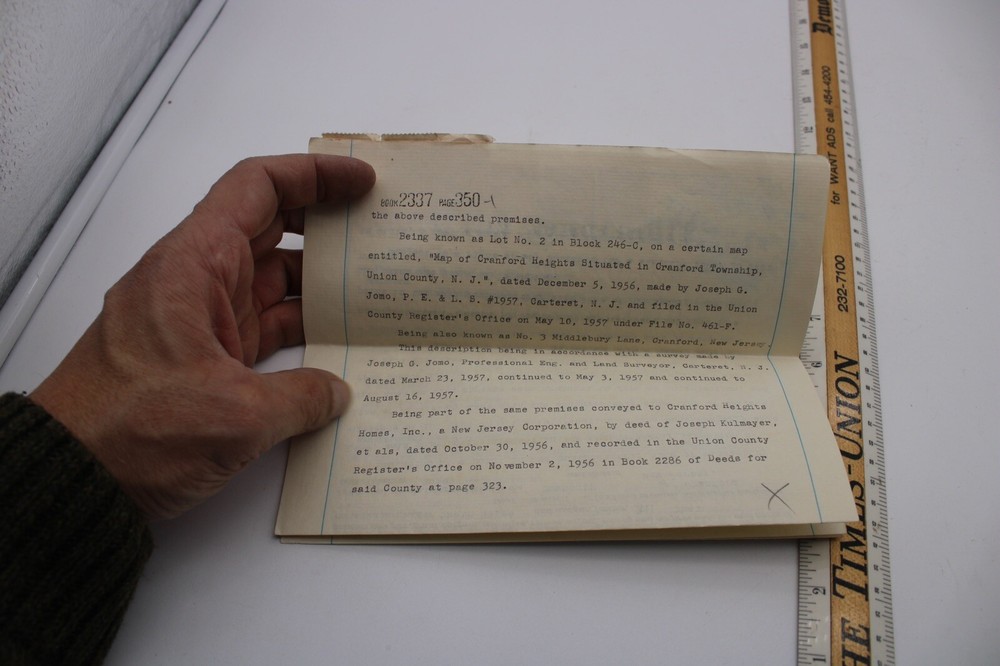 BOOK 2337 PAGE 350-A
the above described premises.
Being known as Lot No. 2 in Block 246-C, on a certain map
entitled, "Map of Cranford Heights Situated in Cranford Township,
Union County, N. J.", dated December 5, 1956, made by Joseph G.
Jomo, P. E. & L. S. #1957, Carteret, N. J. and filed in the Union
County Register's Office on May 10, 1957 under File No. 461-F.
Being also known as No. 3 Middlebury Lane, Cranford, New Jersey.
This description being in accordance with a survey made by
Joseph G. Jomo, Professional Eng. and Land Surveyor, Carteret, N. J.
dated March 23, 1957, continued to May 3, 1957 and continued to
August 16, 1957.
Being part of the same premises conveyed to Cranford Heights
Homes, Inc., a New Jersey Corporation, by deed of Joseph Kulmayer,
et als, dated October 30, 1956, and recorded in the Union County
Register's Office on November 2, 1956 in Book 2286 of Deeds for
said County at page 323.
X
HE TIMES-UNION
232-7100
for WANT ADS call 454-4200
Demo
7
6
2
1